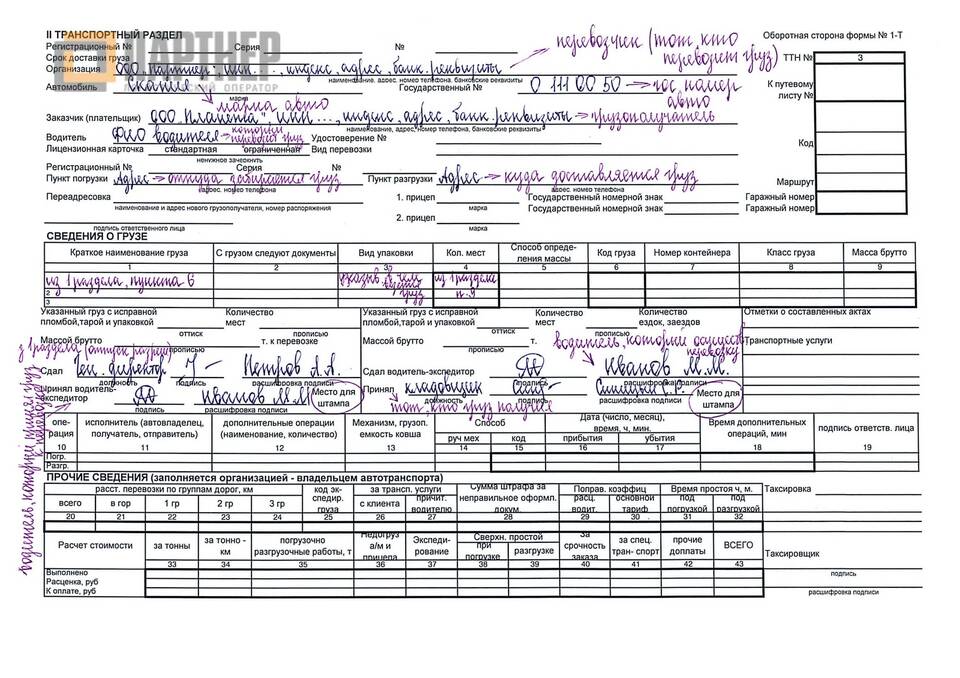 II ТРАНСПОРТНЫЙ РАЗДЕЛ
Оборотная сторона формы № 1-Т
ПАРТНЕР
ОПЕРАТОР
Регистрационный № Серия №
перевозчик (тот, кто перевозит груз)
Срок доставки груза
ТТН № 3
Организация ООО "Партнер", ИНН ..., индекс, адрес, банк. реквизиты
наименование, адрес, номер телефона, банковские реквизиты
Автомобиль Скания Государственный № О 111 ОО 50 → гос номер авто
К путевому листу №
марка
марка авто
Заказчик (плательщик) ООО "Планета" ИНН ..., индекс, адрес, банк. реквизиты → грузополучатель
наименование, адрес, номер телефона, банковские реквизиты
Водитель ФИО водителя → который перевозит груз Удостоверение №
Код
Лицензионная карточка стандартная ограниченная Вид перевозки
ненужное зачеркнуть
Регистрационный № Серия №
Пункт погрузки Адрес → откуда забирается груз Пункт разгрузки Адрес → куда доставляется груз
Маршрут
адрес, номер телефона адрес, номер телефона
Переадресовка 1. прицеп Государственный номерной знак Гаражный номер
наименование и адрес нового грузополучателя, номер распоряжения марка Государственный номерной знак Гаражный номер
2. прицеп
подпись ответственного лица марка
СВЕДЕНИЯ О ГРУЗЕ
Краткое наименование груза С грузом следуют документы Вид упаковки Кол. мест Способ определения массы Код груза Номер контейнера Класс груза Масса брутто
1 2 3 4 5 6 7 8 9
из 1 раздела, пункта 6 в чем груз из 1 раздела п. 9
2
3
Указанный груз с исправной пломбой,тарой и упаковкой Количество мест
Указанный груз с исправной пломбой,тарой и упаковкой Количество мест Количество ездок, заездов
Отметки о составленных актах
оттиск прописью оттиск прописью
Массой брутто т. к перевозке Массой брутто т.
водитель, который осуществ перевозку
Транспортные услуги
прописью прописью
из 1 раздела (отпуск разреш)
Сдал Ген. директор Петров А.А. Сдал водитель-экспедитор Иванов М.М.
должность подпись расшифровка подписи подпись расшифровка подписи
Принял водитель-экспедитор Иванов М.М Место для штампа
подпись расшифровка подписи
Принял кладовщик Синицын С.Р. Место для штампа
должность подпись расшифровка подписи
тот, кто груз получил
водитель, который принял груз к перевозке
операция исполнитель (автовладелец, получатель, отправитель) дополнительные операции (наименование, количество) Механизм, грузоп. емкость ковша Способ Дата (число, месяц), время, ч, мин. Время дополнительных операций, мин подпись ответств. лица
руч мех код прибытия убытия
10 11 12 13 14 15 16 17 18 19
Погр.
Разгр.
ПРОЧИЕ СВЕДЕНИЯ (заполняется организацией - владельцем автотранспорта)
расст. перевозки по группам дорог, км код экспедир. груза за трансп. услуги Сумма штрафа за неправильное оформл. докум. Поправ. коэффиц Время простоя ч, м. Таксировка
всего в гор 1 гр 2 гр 3 гр с клиента причит. водителю расц. водит. основной тариф под погрузкой под разгрузкой
20 21 22 23 24 25 26 27 28 29 30 31 32
Расчет стоимости за тонны за тонно - км погрузочно разгрузочные работы, т Недогруз а/м и прицепа Экспедирование Сверхн. простой За срочность заказа за спец. тран- спорт прочие доплаты ВСЕГО
при погрузке разгрузке
Таксировщик
33 34 35 36 37 38 39 40 41 42 43
Выполнено
подпись
Расценка, руб
К оплате, руб
расшифровка подписи